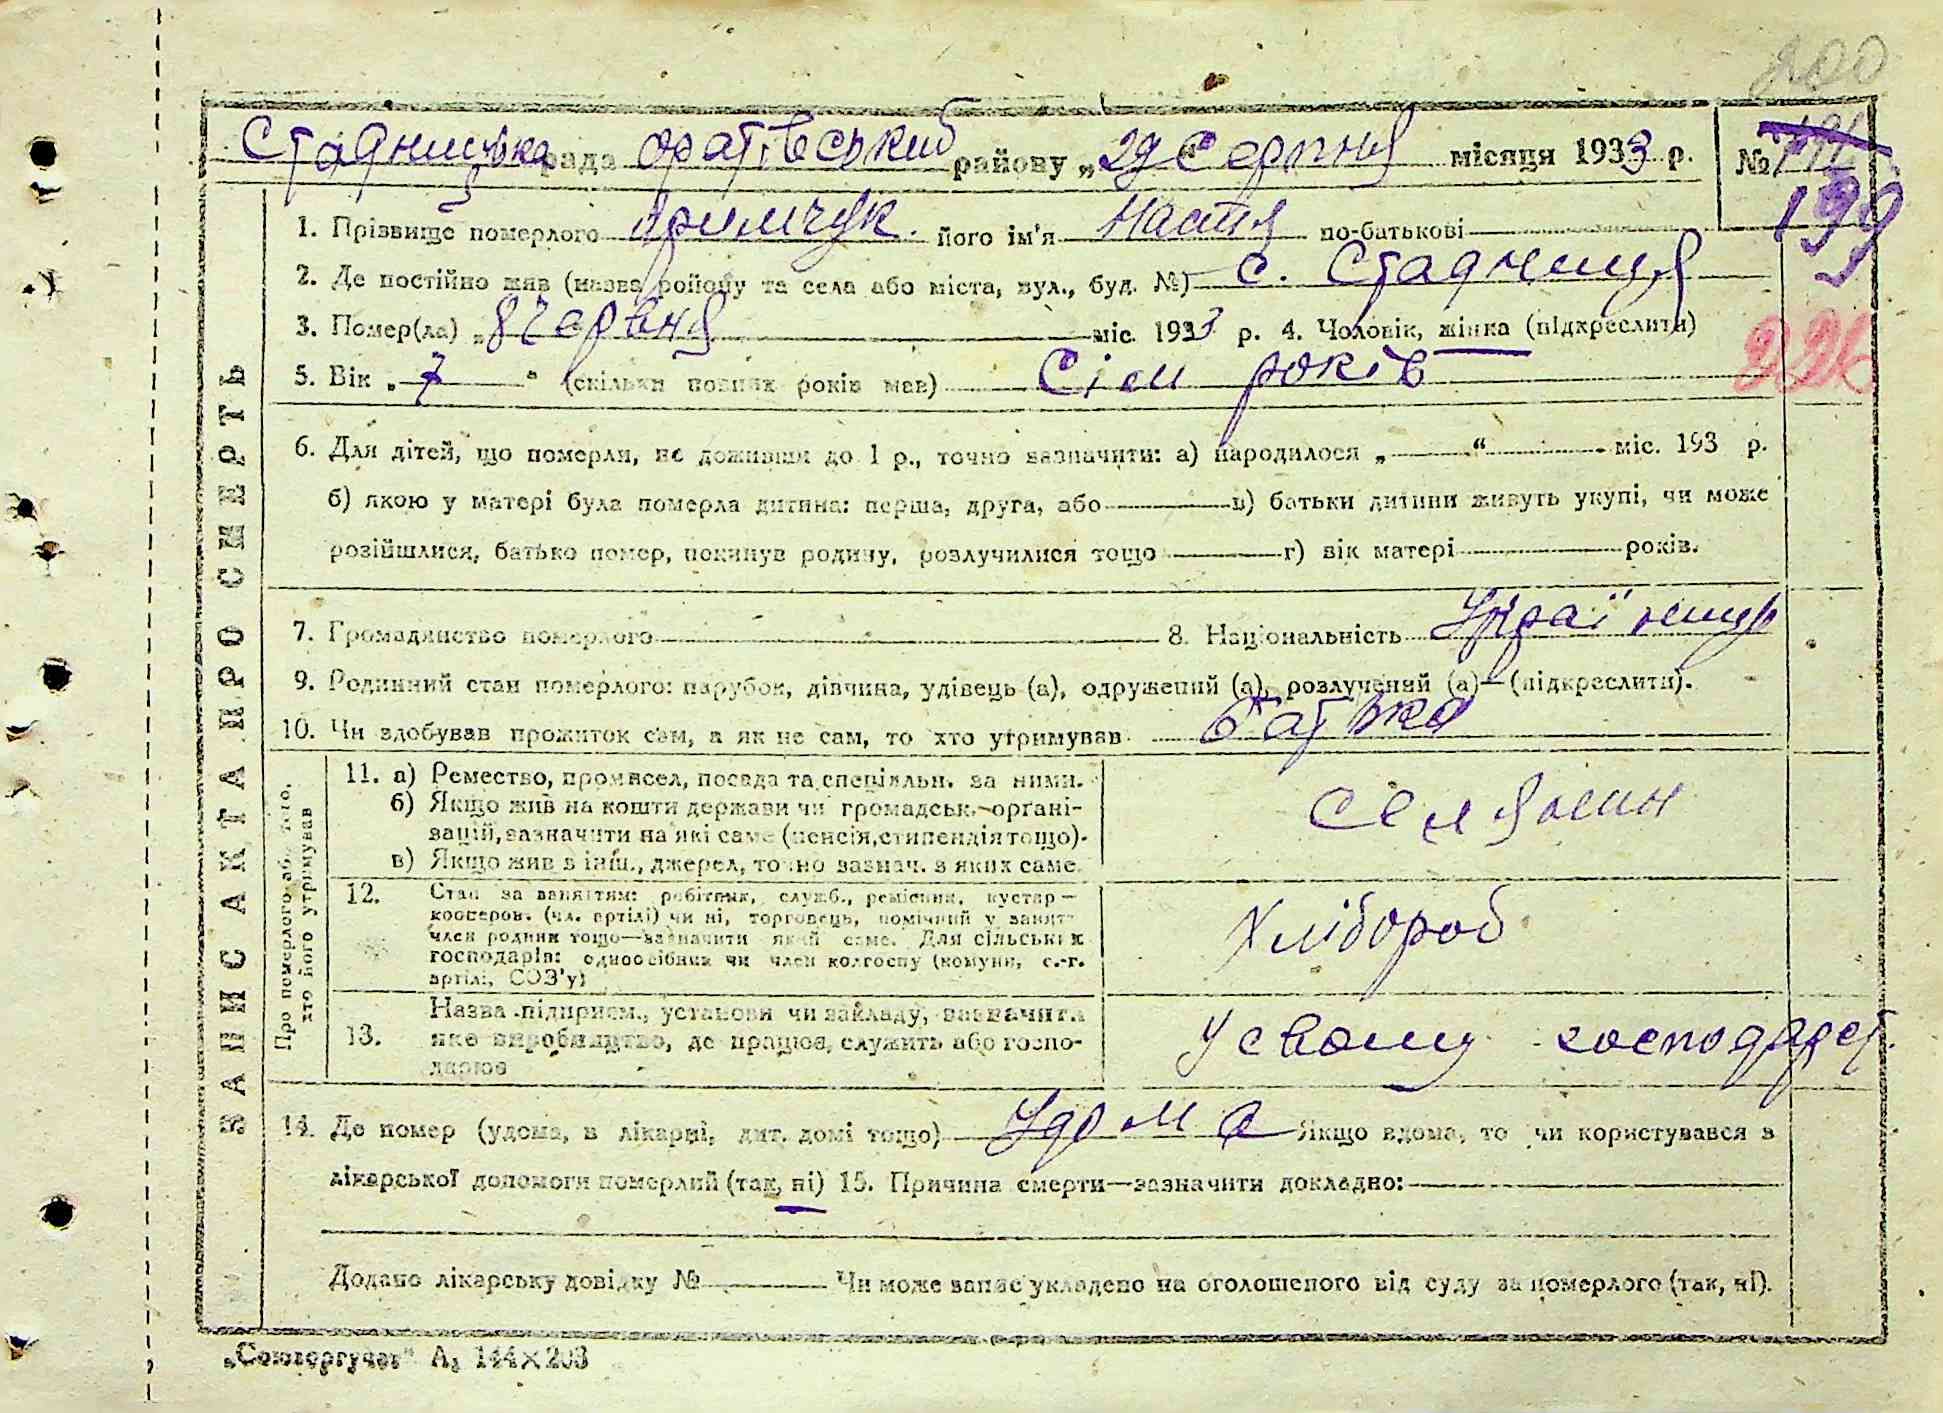 200
Стадницька рада Фратівський району „29 Серпня місяця 1933 р. №
199
1. Прізвище померлого його ім'я Настя по-батькові
2. Де постійно жив (назва району та села або міста, вул., буд. №) с. Стадниця
3. Помер(ла) „8 Червня міс. 1933 р. 4. Чоловік, жінка (підкреслити)
226
5. Вік „ 7 “ (скільки повних років мав) Сім років
6. Для дітей, що померли, не доживши до 1 р., точно зазначити: а) народилося „ “ міс. 193 р.
б) якою у матері була померла дитина: перша, друга, або в) батьки дитини живуть укупі, чи може
розійшлися, батько помер, покинув родину, розлучилися тощо г) вік матері років.
7. Громадянство померлого 8. Національність Україниця
9. Родинний стан померлого: парубок, дівчина, удівець (а), одружений (а), розлучений (а)—(підкреслити).
10. Чи здобував прожиток сам, а як не сам, то хто утримував батько
ЗАПИС АКТА ПРО СМЕРТЬ
Про померлого або того, хто його утримував
11. а) Ремество, промисел, посада та спеціяльн. за ними.
б) Якщо жив на кошти держави чи громадськ. органі-
зацій, зазначити на які саме (пенсія, стипендія тощо).
в) Якщо жив з інш., джерел, точно зазнач. з яких саме.
Селянин
12. Стан за заняттям: робітник, служб., ремісник, кустар—
кооперов. (чл. артілі) чи ні, торговець, помічний у занят.
член родини тощо—зазначити який саме. Для сільських
господарів: одноосібник чи член колгоспу (комуни, с.-г.
артілі, СОЗ'у)
Хлібороб
13. Назва підприєм., установи чи закладу, зазначити
яке виробництво, де працює, служить або госпо-
дарює
У своему господарст.
14. Де помер (удома, в лікарні, дит. домі тощо) Удома Якщо вдома, то чи користувався з
лікарської допомоги померлий (так, ні) 15. Причина смерти—зазначити докладно:
Додано лікарську довідку № Чи може запис укладено на оголошеного від суду за померлого (так, ні).
„Союзоргучет“ А₅ 144×203